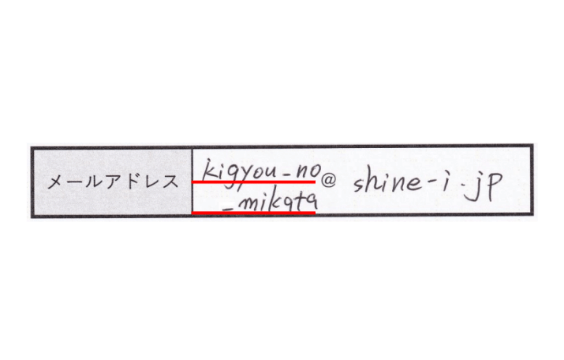 メールアドレス
kigyou_no
_mikata
@ shine-i.jp